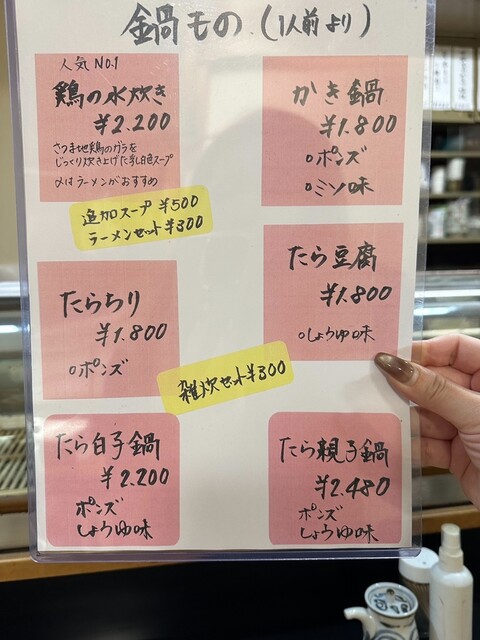 鍋もの (1人前より)
人気 NO.1
鶏の水炊き
¥2.200
さつま地鶏のガラを
じっくり炊き上げた乳白色スープ
〆はラーメンがおすすめ
追加スープ ¥500
ラーメンセット ¥300
かき鍋
¥1.800
○ポンズ
○ミソ味
たらちり
¥1.800
○ポンズ
たら豆腐
¥1.800
○しょうゆ味
雑炊セット ¥300
たら白子鍋
¥2.200
ポンズ
しょうゆ味
たら親子鍋
¥2.480
ポンズ
しょうゆ味